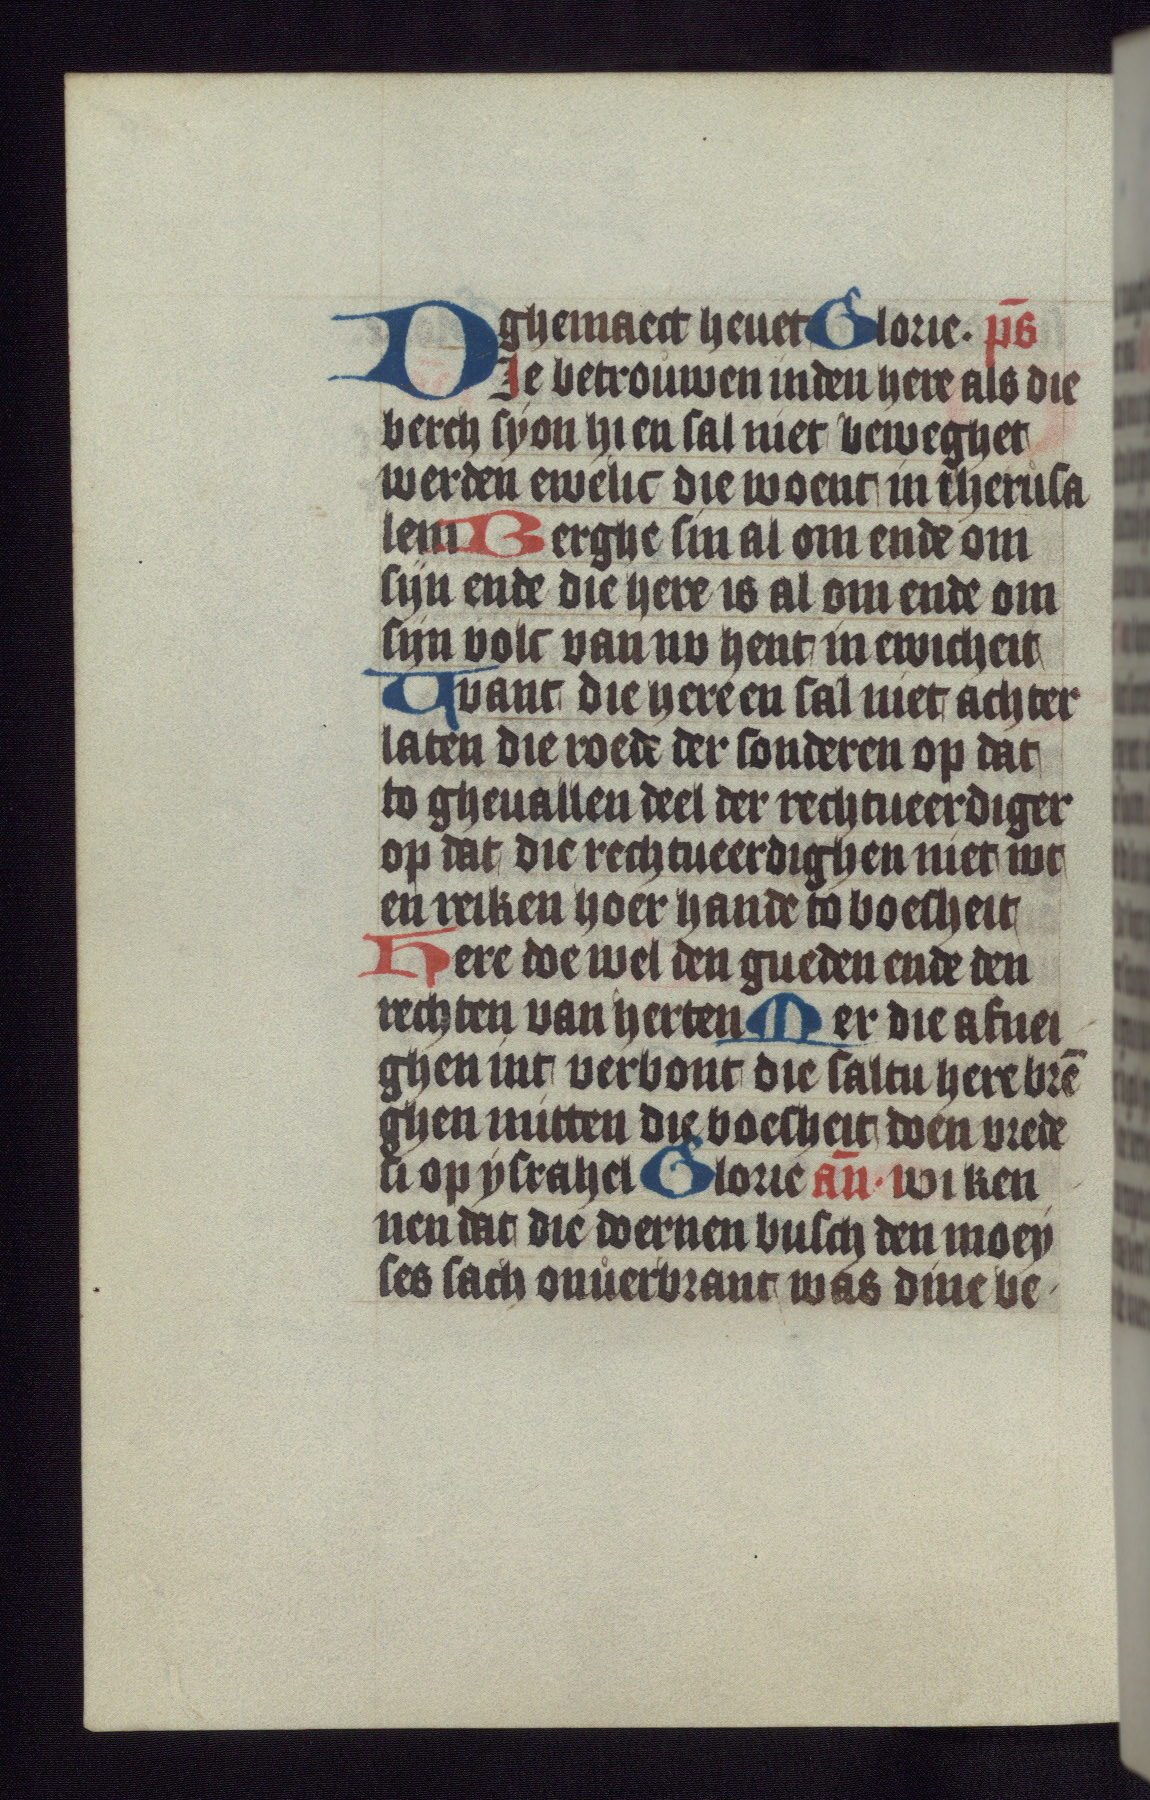 ghemaect heuet Glorie. ps̄
DIe betrouwen inden here als die
berch syon hi en sal niet beweghet
werden ewelic die woent in iherusa
lem Berghe sin al om ende om
sijn ende die here is al om ende om
sijn volc van nv hent in ewicheit
Want die here en sal niet achter
laten die roede der sonderen op dat
to gheuallen deel der rechtueerdiger
op dat die rechtueerdighen niet wt
en reiken hoer hande to boesheit
Here doe wel den gueden ende den
rechten van herten Mer die afnei
ghen int verbont die saltu here brē
ghen mitten die boesheit doen vrede
si op ysrahel Glorie an̄. wi ken
nen dat die doernen busch den moey
ses sach onuerbrant was dine be